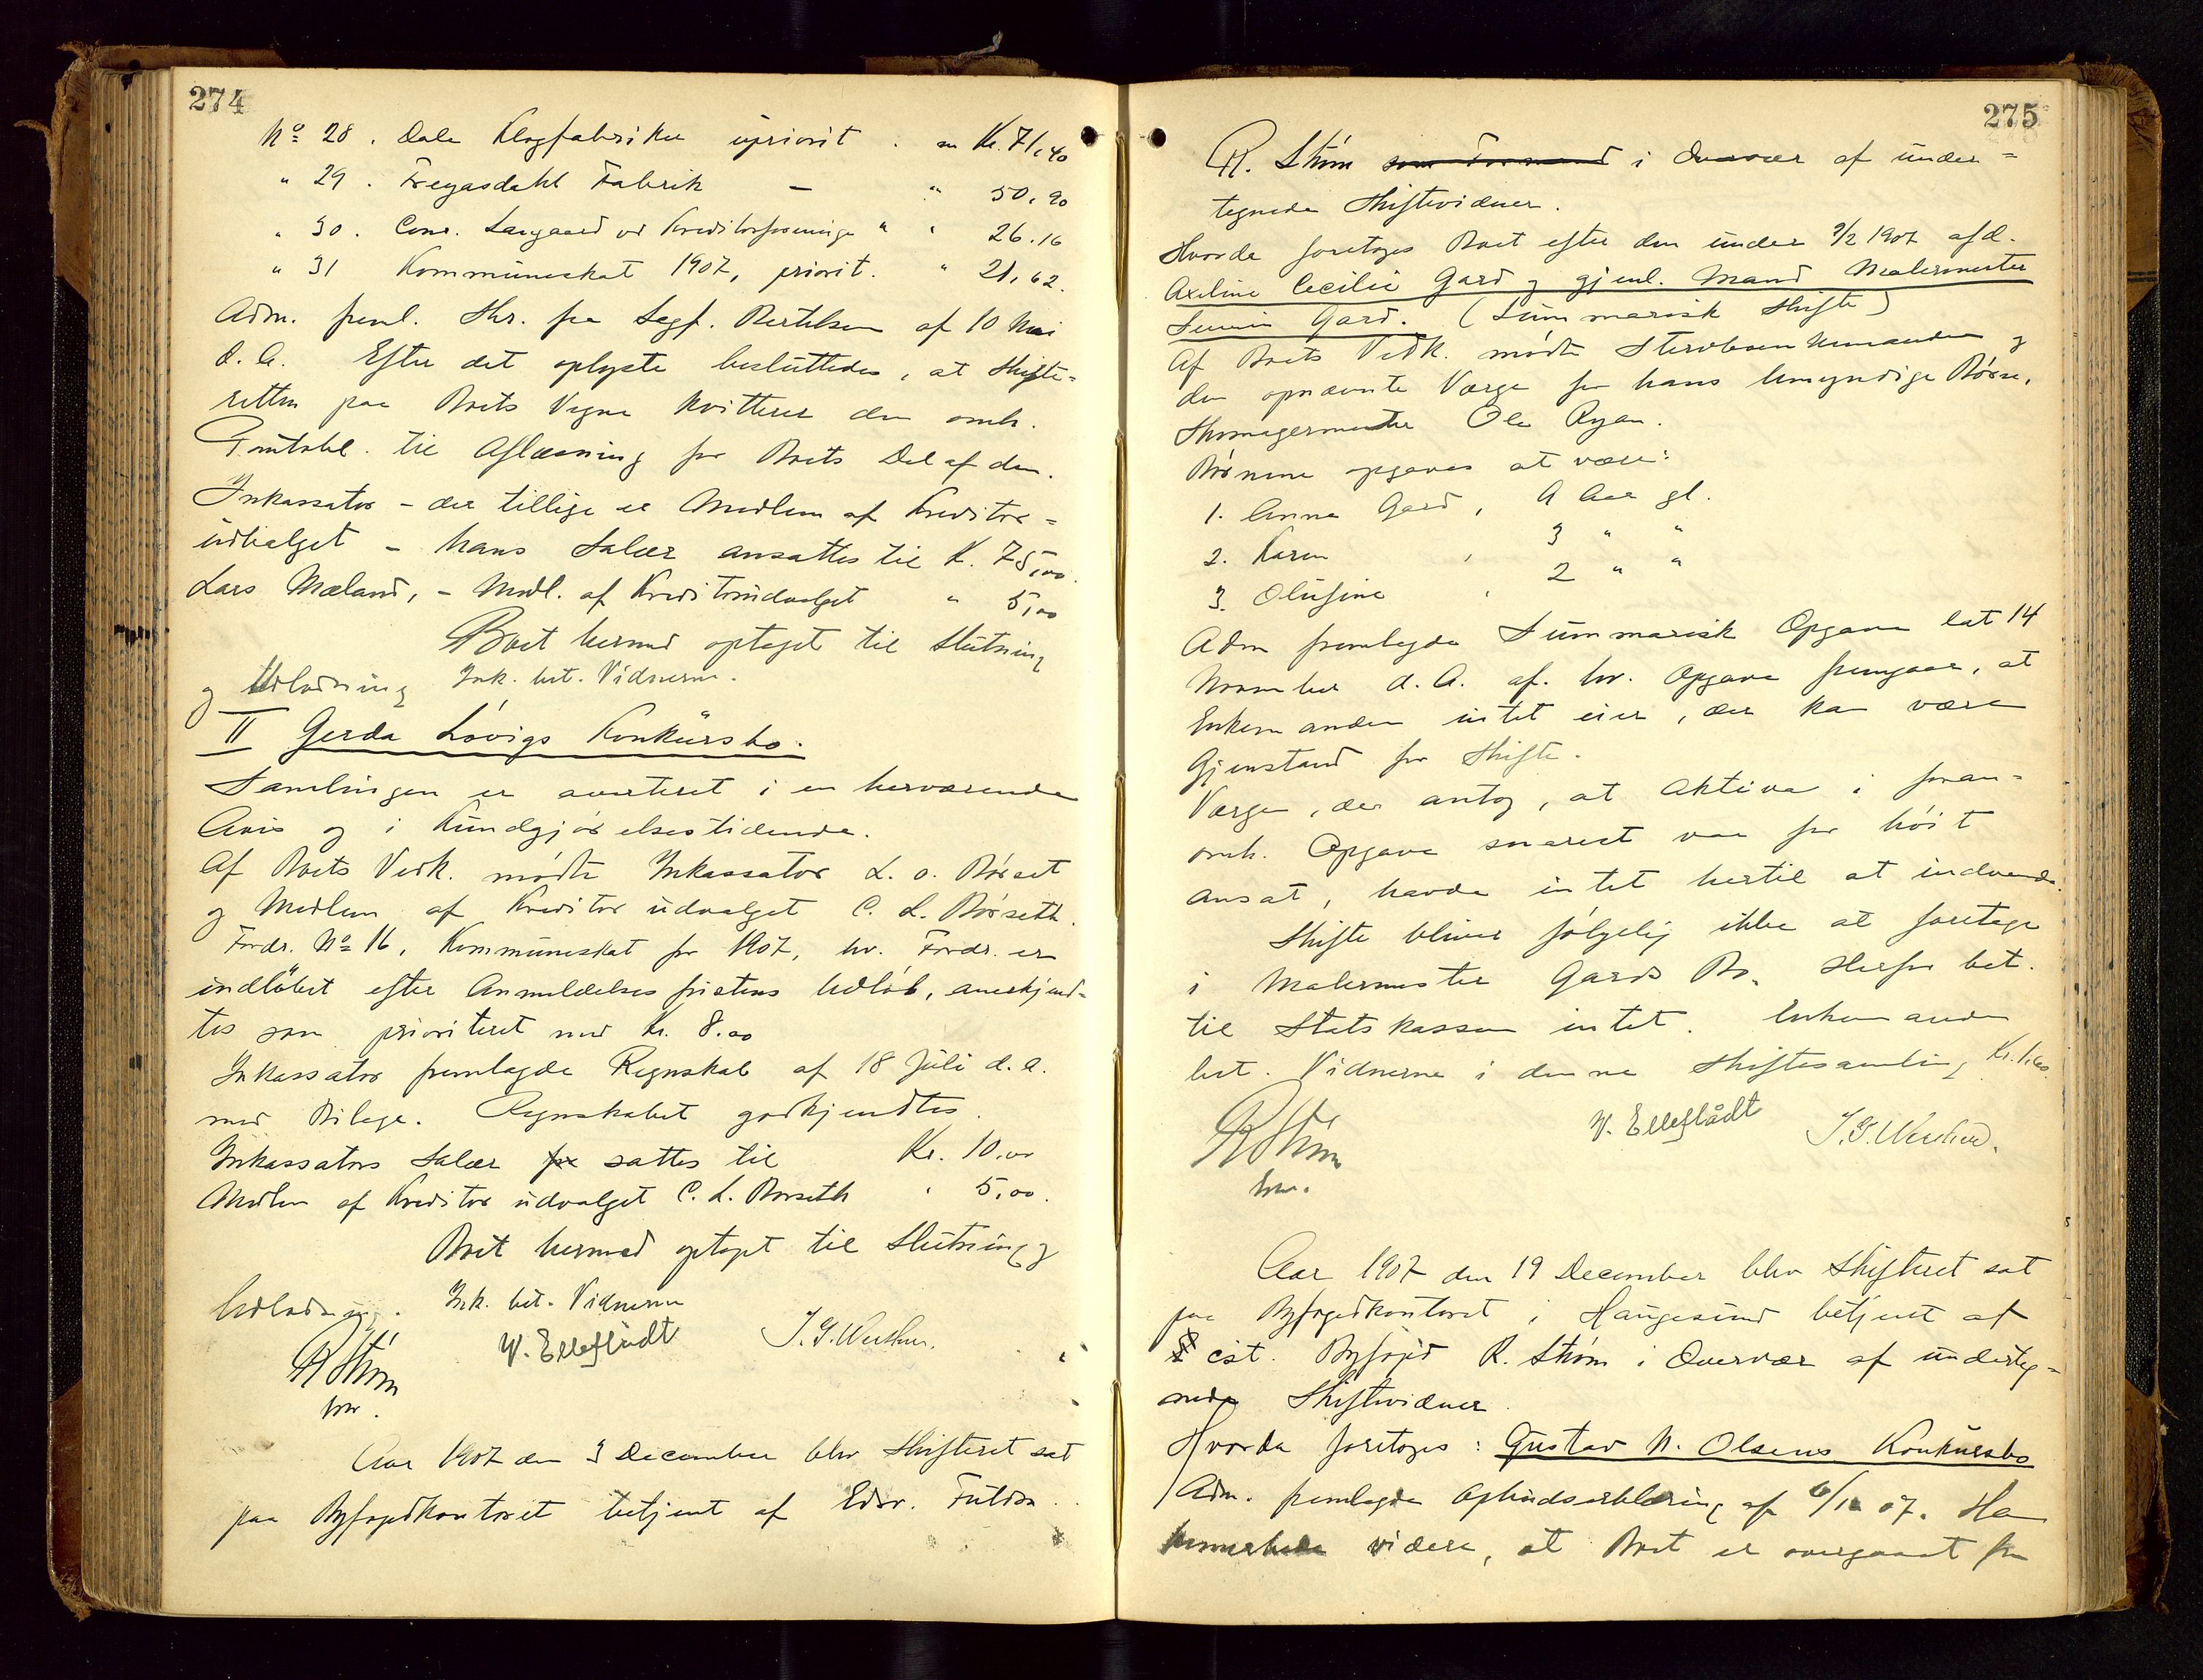 274
No 28. Dale Klægfabriker upriorit. m Kr. 71,40
" 29. Fregasdahl Fabrik — " 50,90
" 30. Conr. Langaard vd Kreditorforeninge " " 26.16
" 31 Kommuneskat 1907, priorit. " 21,62.
Adm. freml. Skr. fra Sagf. Bertelsen af 10 Mai
d. A. Efter det oplyste besluttedes, at Skifte-
retten paa Boets Vegne kvitterer den omh.
til Aflæsning for Boets Del af den.
Inkassator – der tillige er Medlem af Kreditor-
udvalget – hans Salær ansattes til K. 75,00.
Lars Mæland, – Medl. af Kreditorudvalget " 5,00
Boet hermed optaget til Slutning
og Udlodning Ink. bet. Vidnerne.
II Gerda Løvigs Konkursbo.
Samlingen er averteret i en herværende
Avis og i Kundgjørelsestidende.
Af Boets Vedk. mødte Inkassator L. O. Børset
og Medlem af Kreditorudvalget C. L. Børseth.
Fordr. No 16, Kommuneskat for 1907, hv. Fordr. er
indløbet efter Anmeldelsesfristens Udløb, anerkjend-
tes som prioriteret med Kr. 8.00
Inkassator fremlagde Regnskab af 18 Juli d. A.
med Bilage. Regnskabet godkjendtes.
Inkassators Salær sattes til Kr. 10,00
Medlem af Kreditorudvalget C. L. Børseth " 5,00.
Boet hermed optaget til Slutning og
Udlodning. Ink. bet. Vidnerne
R Strøm W. Elleflådt J. G. Werther.
Aar 1907 den 3 December blev Skifteret sat
paa Byfogedkontoret betjent af Edsv. Fuldm.
275
R. Strøm som Formand i Overvær af under-
tegnede Skiftevidner.
Hvorda foretoges Boet efter den under 9/2 1907 afd.
Axeline Cecilie Gard og gjenl. Mand Malermester
Gard. (Summarisk Skifte)
Af Boets Vedk. mødte Stervboenkemanden og
den opnævnte Værge for hans Umyndige Børn,
Skomagermester Ole Ryan.
Børnene opgaves at være:
1. Anna Gard, 9 Aar gl.
2. Karen , 3 " "
3. Olufine , 2 " "
Adm fremlagde Summarisk Opgave dat 14
November d. A. af hv. Opgave fremgaar, at
Enkemanden intet eier, der kan være
Gjenstand for Skifte.
Værgen, der antog, at Aktiva i foran-
omh. Opgave snarest var for høit
ansat, havde intet hertil at indvende.
Skifte bliver følgelig ikke at foretage
i Malermester Gards Bo. Herfor bet.
til Statskassen intet. Enkemanden
bet. Vidnerne i denne Skiftesamling Kr. 1,60.
R Strøm W. Elleflådt J. G. Werther.
Aar 1907 den 19 December blev Skifteret sat
paa Byfogedkontoret i Haugesund betjent af
cst. Byfoged R. Strøm i Overvær af underteg-
nede Skiftevidner.
Hvorda foretoges: Gustav N. Olsens Konkursbo
Adm. fremlagde Opbudserklæring af 6/12 07. Han
bemerkede videre, at Boet er overgaaet fra